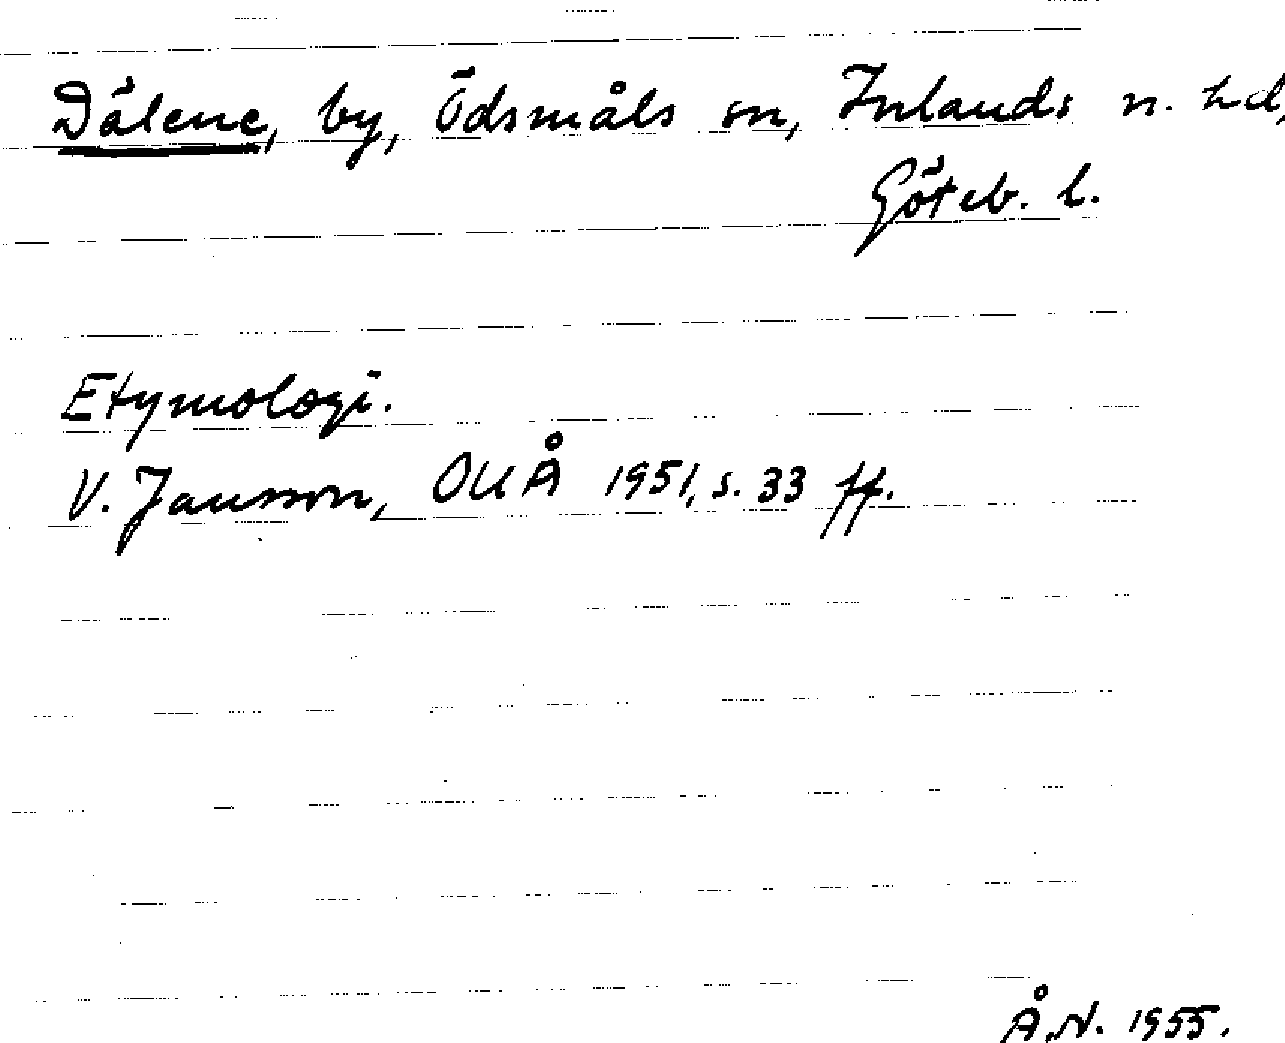 Dälene, by, Ödsmåls sn, Inlands n. hd,
Göteb. l.
Etymologi.
V. Jansson, OUÅ 1951, s. 33 ff.
Å.N. 1955.